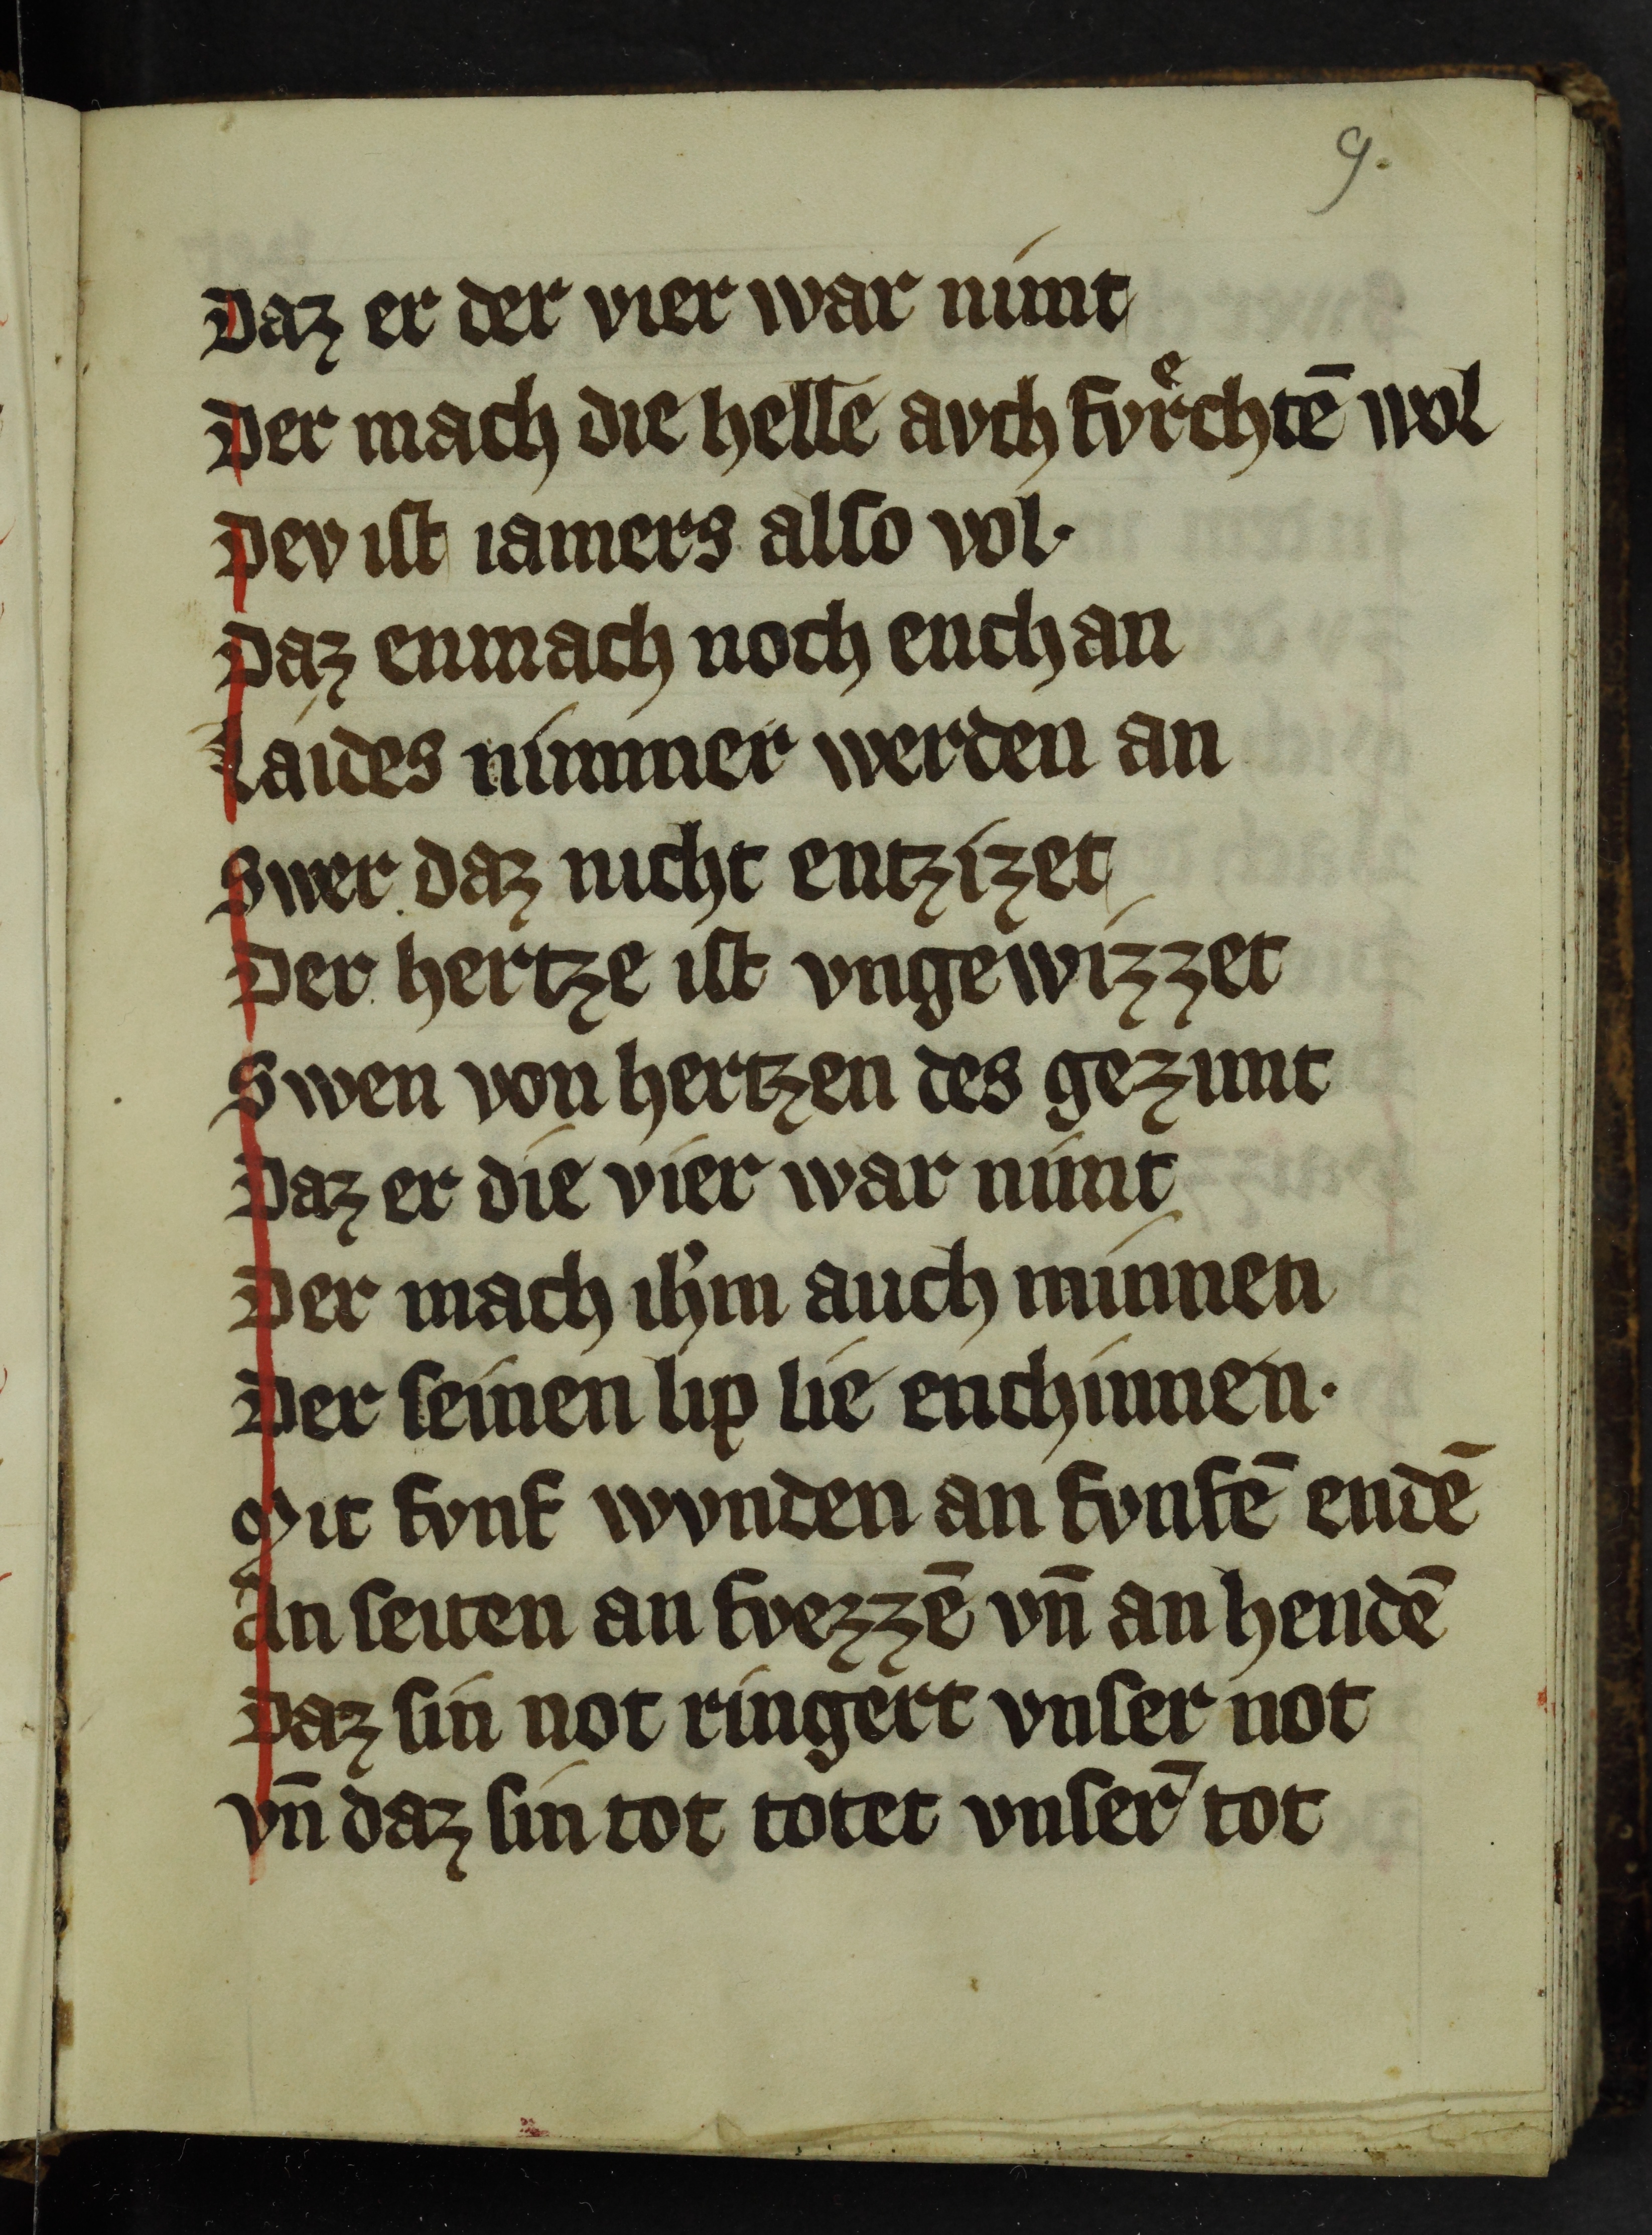 9.
Daz er der vier war nímt
Der mach die helle avch fvrͤchtē wol
Dev iſt iamers alſo vol·
Daz enmach noch enchan
Laídes nímmer werden an
Swer daz nicht entzízet
Der hertze iſt vngewizzet
Swen von hertzen des gezímt
Daz er díe víer war nímt
Der mach ih̓m auch mínnen
Der ſeínen lip líe enchínnen·
Mit fvnf wvnden an fvnfē endē
An ſeiten an fvezzē vn̄ an hendē
Daz ſín not ríngert vnſer not
vn̄ daz ſín tot totet vnſer̄ tot